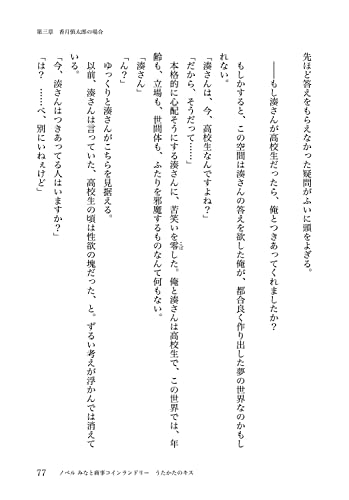 第三章　香月慎太郎の場合
先ほど答えをもらえなかった疑問がふいに頭をよぎる。
――もし湊さんが高校生だったら、俺とつきあってくれましたか？
もしかすると、この空間は湊さんの答えを欲した俺が、都合良く作り出した夢の世界なのかもし
れない。
「湊さんは、今、高校生なんですよね？」
「だから、そうだって……」
本格的に心配そうにする湊さんに、苦笑いを零した。俺と湊さんは高校生で、この世界では、年
こぼ
齢も、立場も、世間体も、ふたりを邪魔するものなんて何もない。
「湊さん」
「ん？」
ゆっくりと湊さんがこちらを見据える。
以前、湊さんは言っていた、高校生の頃は性欲の塊だった、と。ずるい考えが浮かんでは消えて
いる。
「今、湊さんはつきあってる人はいますか？」
「は？　……べ、別にいねぇけど」
77　ノベル みなと商事コインランドリー　うたかたのキス